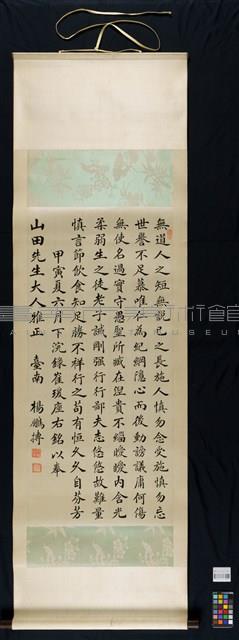 無道人之短無說己之長施人慎勿念受施慎勿忘
世譽不足慕唯仁為紀綱隱心而後動謗議庸何傷
無使名過實守愚聖所臧在涅貴不緇曖曖內含光
柔弱生之徒老子誡剛強行行鄙夫志悠悠故難量
慎言節飲食知足勝不祥行之苟有恒久久自芬芳
甲寅夏六月下浣錄崔瑗座右銘以奉
山田先生大人雅正 臺南 楊鵬摶